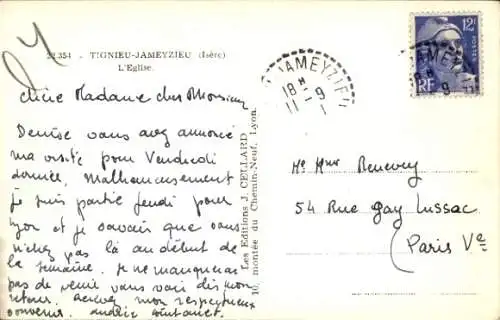 22.354 - TIGNIEU-JAMEYZIEU (Isère)
L'Eglise.
chère Madame cher Monsieur
Denise vous avez annoncé
ma visite pour Vendredi
dernier, Malheureusement
je suis partie jeudi pour
Lyon et je savais que vous
n'étiez pas là au début de
la semaine. je ne manquerai
pas de venir vous voir dès mon
retour. Recevez mon respectueux
souvenir.
Les Editions J. CELLARD
10, montée du Chemin-Neuf, Lyon.
JAMEYZIEU
18H
11-9
1
12F
POSTES
RF
Mr Mme Renevey
54 Rue Gay Lussac
(Paris Ve)